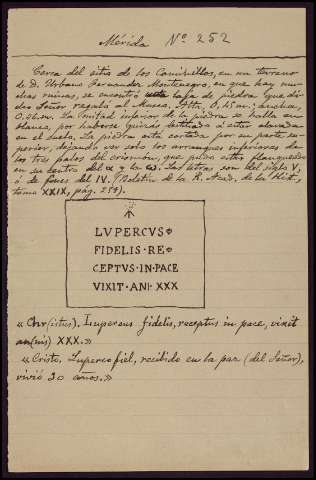 Mérida Nº 252
Cerca del sitio de los Comisillos, en un terreno
de D. Urbano Fernandez Montenegro, en que hay mu-
chas ruinas, se encontró esta losa de piedra que di-
cho Señor regaló al Museo. Alto, 0,45 m; ancho,
0,66 m. La mitad inferior de la piedra se halla en
blanco, por haberse quizás destinado á estar clavada
en el suelo. La piedra está cortada por su parte su-
perior, dejando ver solo los arranques inferiores de
los tres palos del crismón, que quizo estar flanqueado
en su centro del α y la ω. Las letras son del siglo V,
ó de fines del IV. (Boletin de la R. Acad. de la Hist.,
tomo XXIX, pág. 259).
LVPERCVS
FIDELIS · RE
CEPTVS · IN · PACE
VIXIT · ANI · XXX
« Chr(istus). Lupercus fidelis, receptus in pace, vixit
an(nis) XXX. »
« Cristo. Luperco fiel, recibido en la paz (del Señor),
vivió 30 años. »